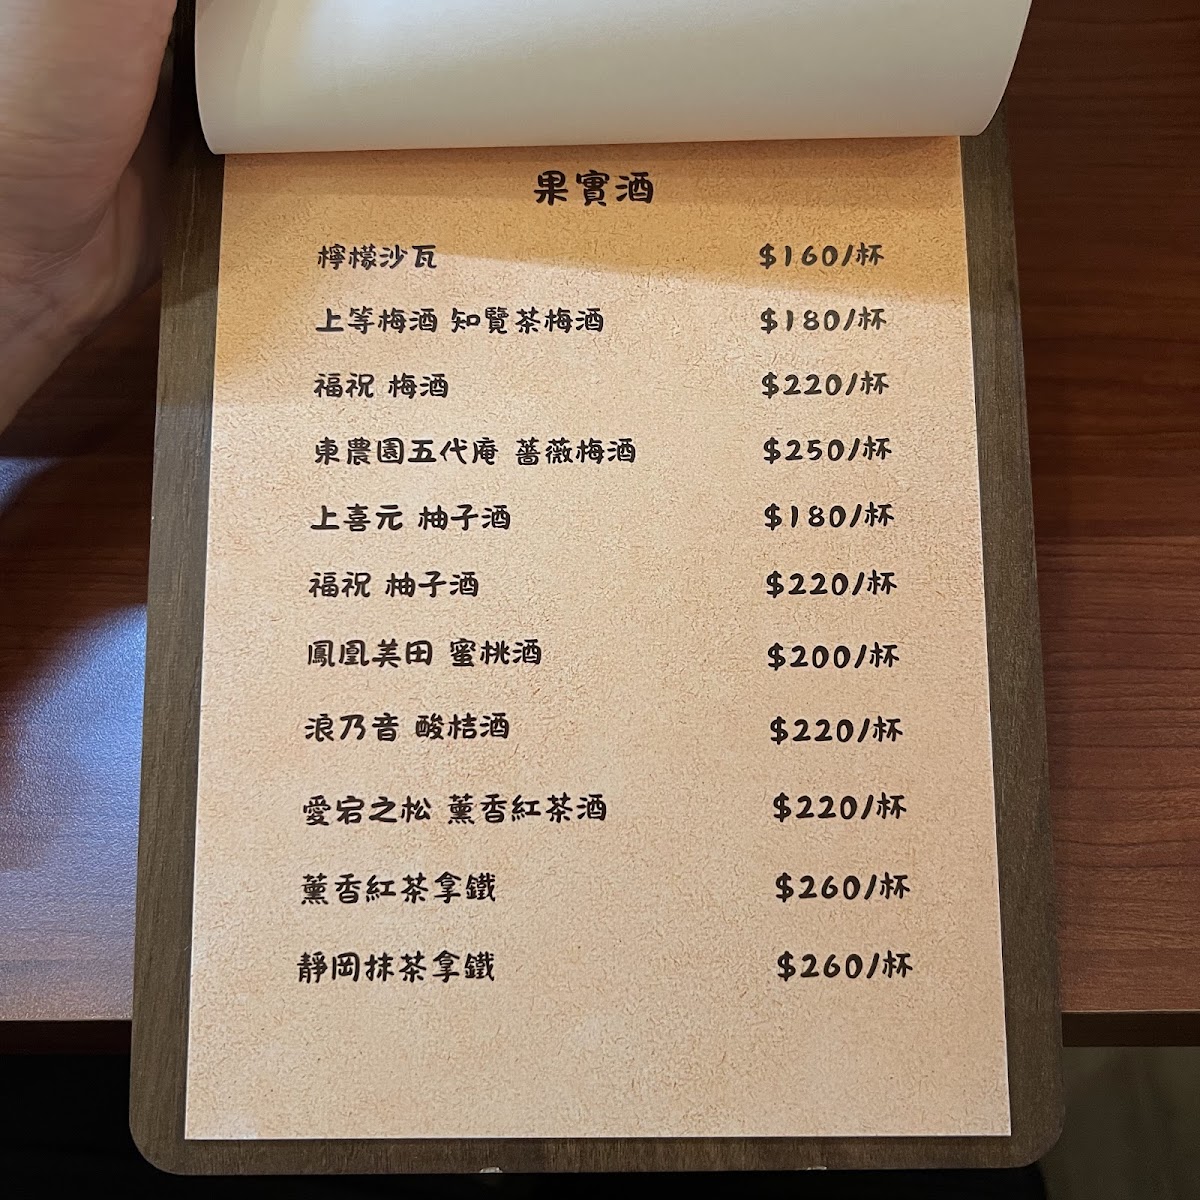 果實酒
檸檬沙瓦 $160/杯
上等梅酒 知覽茶梅酒 $180/杯
福祝 梅酒 $220/杯
東農園五代庵 薔薇梅酒 $250/杯
上喜元 柚子酒 $180/杯
福祝 柚子酒 $220/杯
鳳凰美田 蜜桃酒 $200/杯
浪乃音 酸桔酒 $220/杯
愛宕之松 薰香紅茶酒 $220/杯
薰香紅茶拿鐵 $260/杯
靜岡抹茶拿鐵 $260/杯